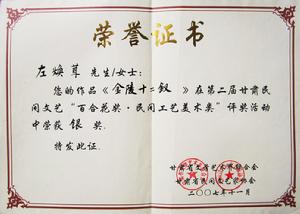 荣誉证书
左焕尊 先生/女士:
您的作品《金陵十二钗》在第二届甘肃民
间文艺“百合花奖·民间工艺美术类”评奖活动
中荣获 银 奖。
特发此证。
甘肃省文学艺术界联合会
甘肃省民间文艺家协会
二〇〇七年十一月